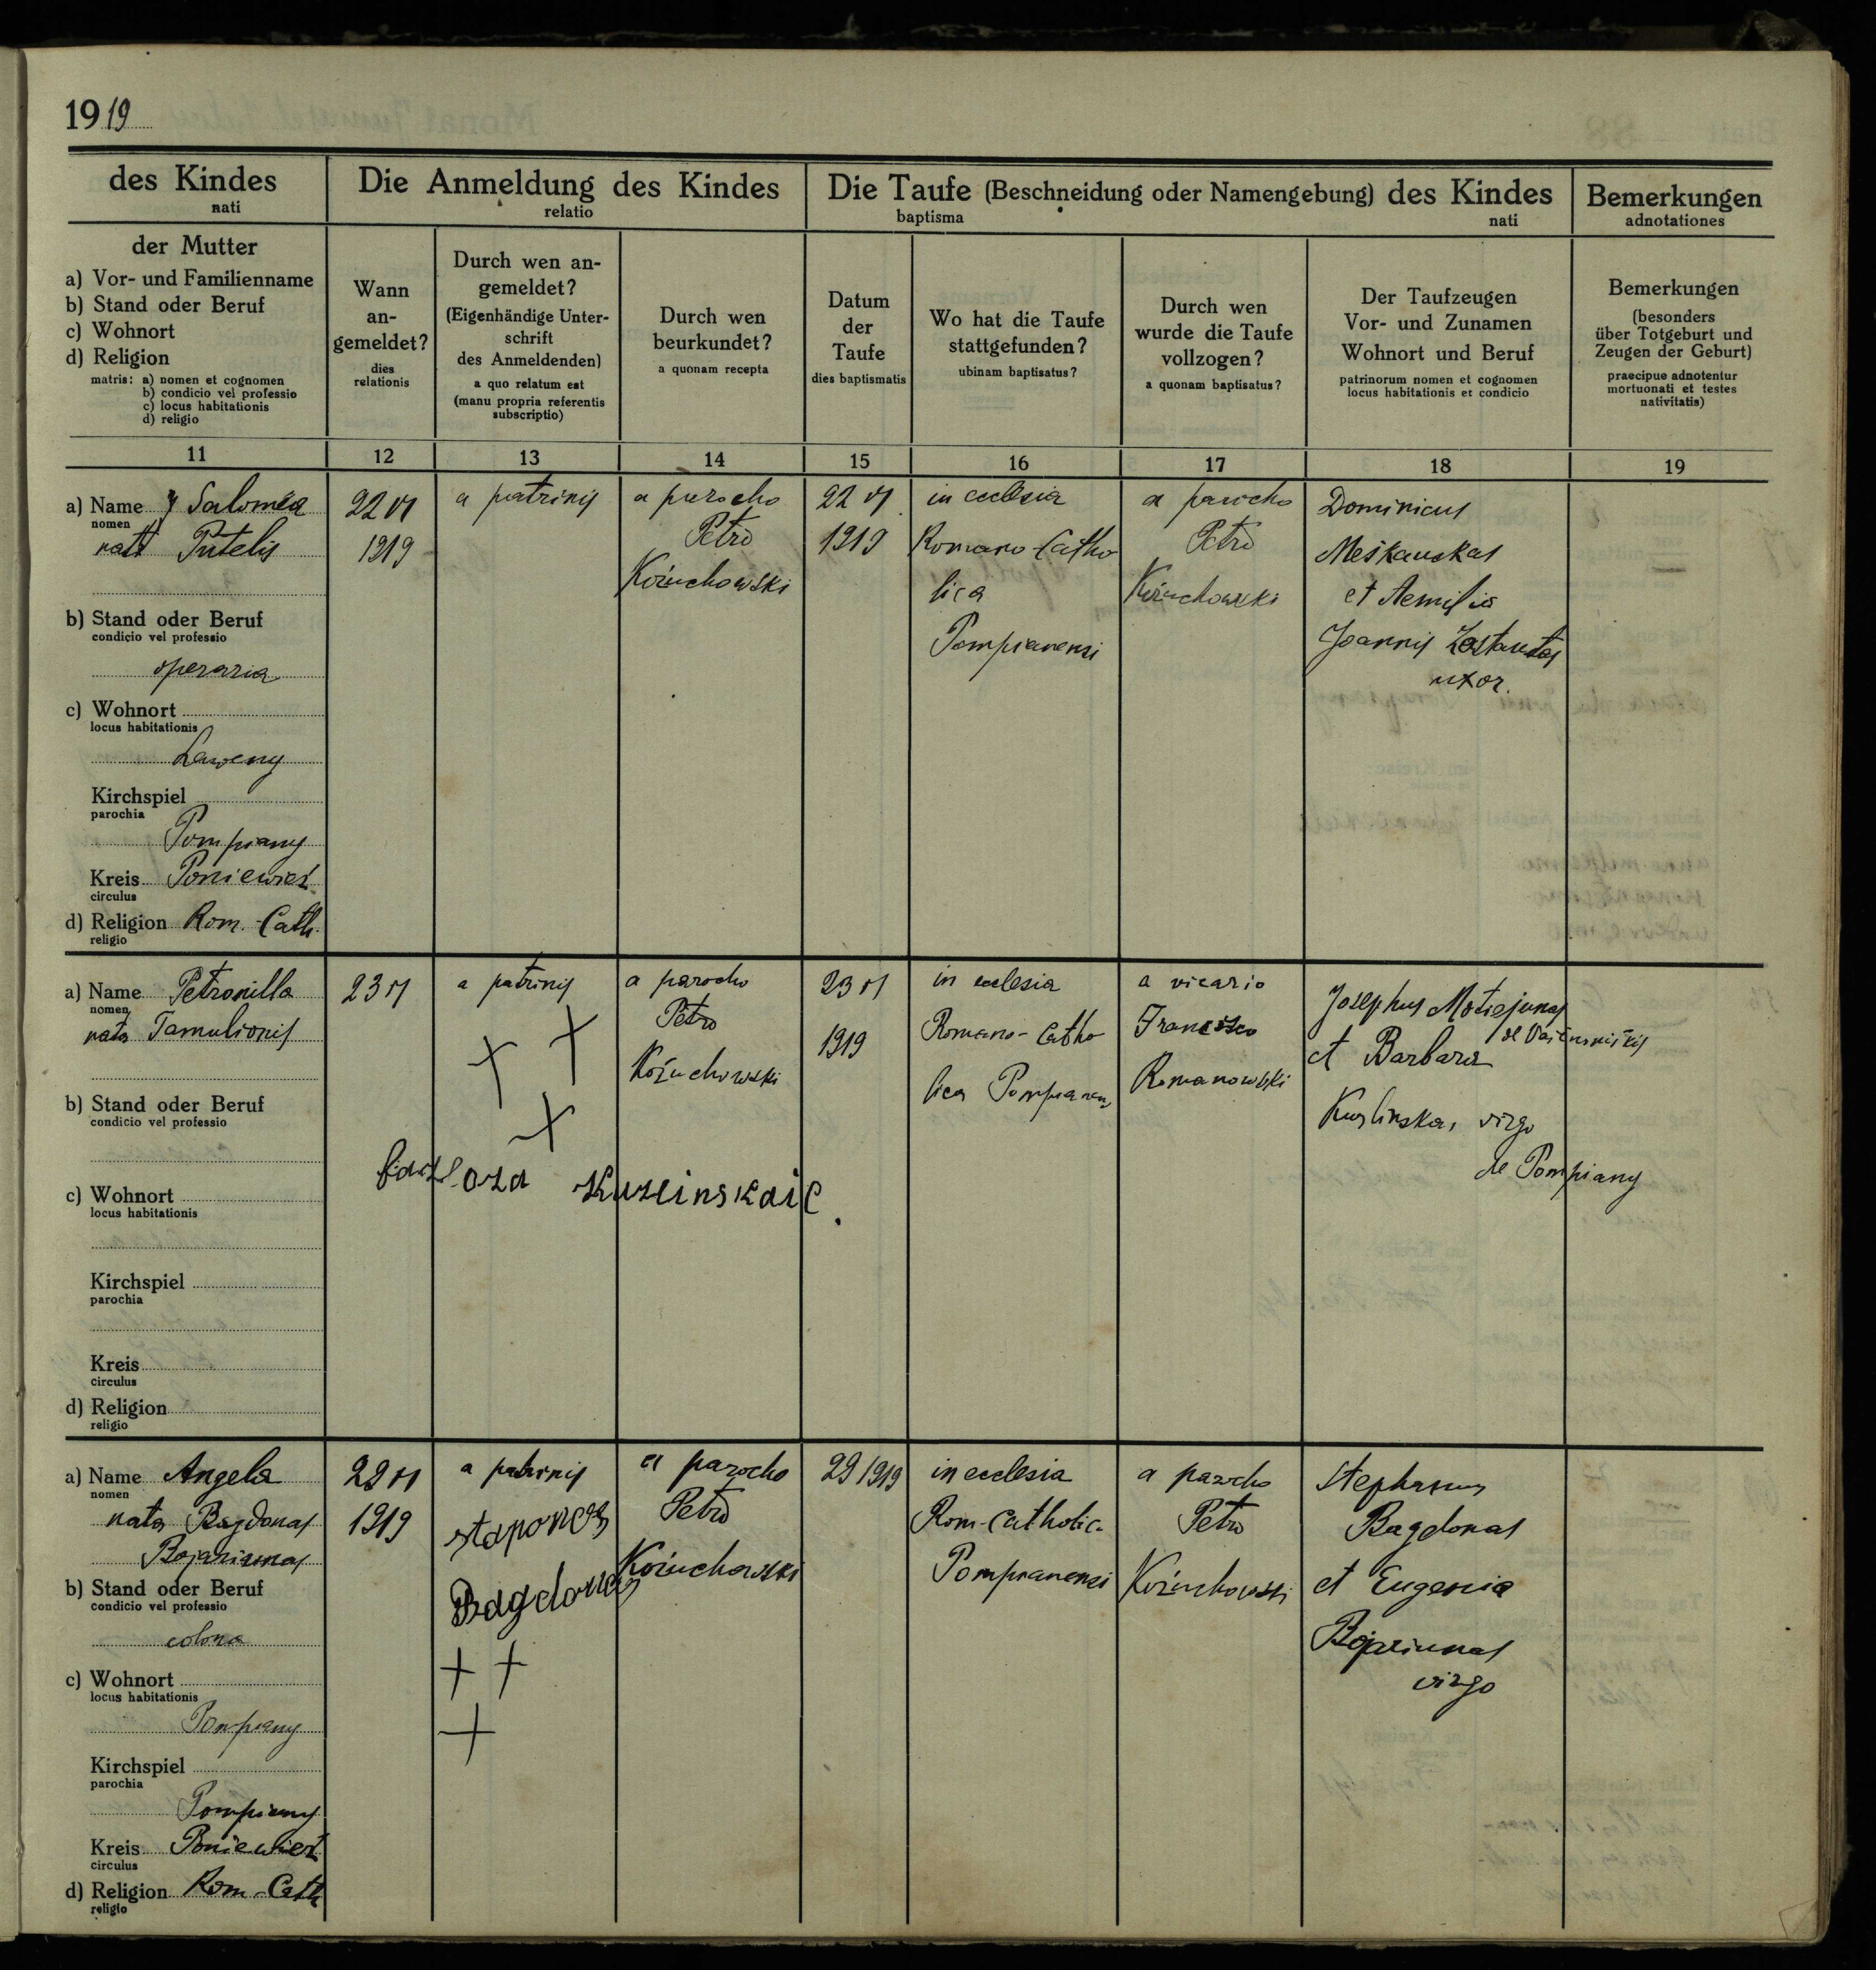 1919
des Kindes
nati
Die Anmeldung des Kindes
relatio
Die Taufe (Beschneidung oder Namengebung) des Kindes
baptisma nati
Bemerkungen
adnotationes
der Mutter
a) Vor- und Familienname
b) Stand oder Beruf
c) Wohnort
d) Religion
matris: a) nomen et cognomen
b) condicio vel professio
c) locus habitationis
d) religio
Wann
an-
gemeldet?
dies
relationis
Durch wen an-
gemeldet?
(Eigenhändige Unter-
schrift
des Anmeldenden)
a quo relatum est
(manu propria referentis
subscriptio)
Durch wen
beurkundet?
a quonam recepta
Datum
der
Taufe
dies baptismatis
Wo hat die Taufe
stattgefunden?
ubinam baptisatus?
Durch wen
wurde die Taufe
vollzogen?
a quonam baptisatus?
Der Taufzeugen
Vor- und Zunamen
Wohnort und Beruf
patrinorum nomen et cognomen
locus habitationis et condicio
Bemerkungen
(besonders
über Totgeburt und
Zeugen der Geburt)
praecipue adnotentur
mortuonati et testes
nativitatis)
11 12 13 14 15 16 17 18 19
a) Name Salomea
nomen
Putelis
b) Stand oder Beruf
condicio vel professio
operaria
c) Wohnort
locus habitationis
Laweny
Kirchspiel
parochia
Pompiany
Kreis Poniewież
circulus
d) Religion Rom.-Cath.
religio
22 VI
1919
a patrinis
a parocho
Petro
Kożuchowski
22 VI
1919
in ecclesia
Romano-Catho
lica
Pompianensi
a parocho
Petro
Kożuchowski
Dominicus
Meškauskas
et Aemilia
Joannis
uxor.
a) Name Petronilla
nomen
nata Tamulionis
b) Stand oder Beruf
condicio vel professio
c) Wohnort
locus habitationis
Kirchspiel
parochia
Kreis
circulus
d) Religion
religio
23 VI
a patrinis
+ +
+
a parocho
Petro
Kożuchowski
Kuzlinskaic
23 VI
1919
in ecclesia
Romano-Catho
lica Pompianen
a vicario
Francisco
Romanowski
Josephus Motiejunas
et Barbara
Kuslinska, virgo
de Pompiany
a) Name Angela
nomen
nata Bagdonas
Bojariunas
b) Stand oder Beruf
condicio vel professio
colona
c) Wohnort
locus habitationis
Pompiany
Kirchspiel
parochia
Pompiany
Kreis Poniewież
circulus
d) Religion Rom-Cath
religio
29 VI
1919
a patrinis
staponas
Bagdonas
+ +
+
a parocho
Petro
Kożuchowski
29 1919
in ecclesia
Rom-Catholic.
Pompianensi
a parocho
Petro
Kożuchowski
Stephanus
Bagdonas
et Eugenia
Bojariunas
virgo